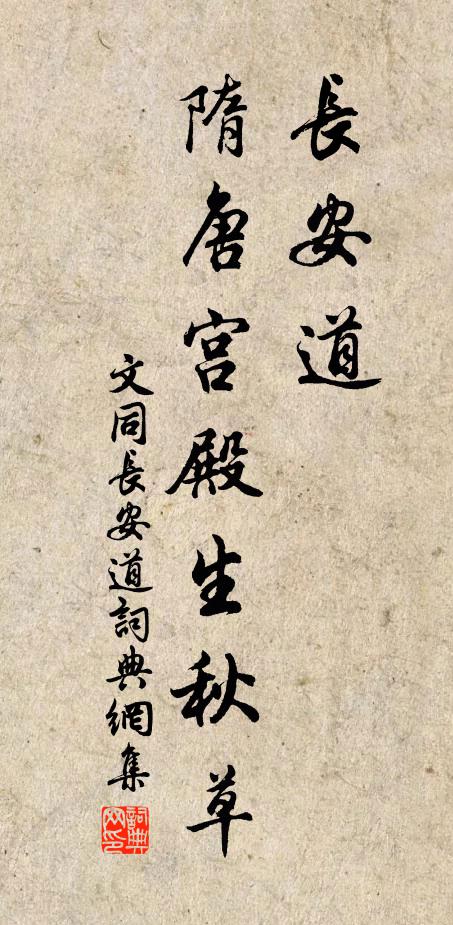 長安道
隋唐宮殿生秋草
文同長安道詞典網集
詞典网印